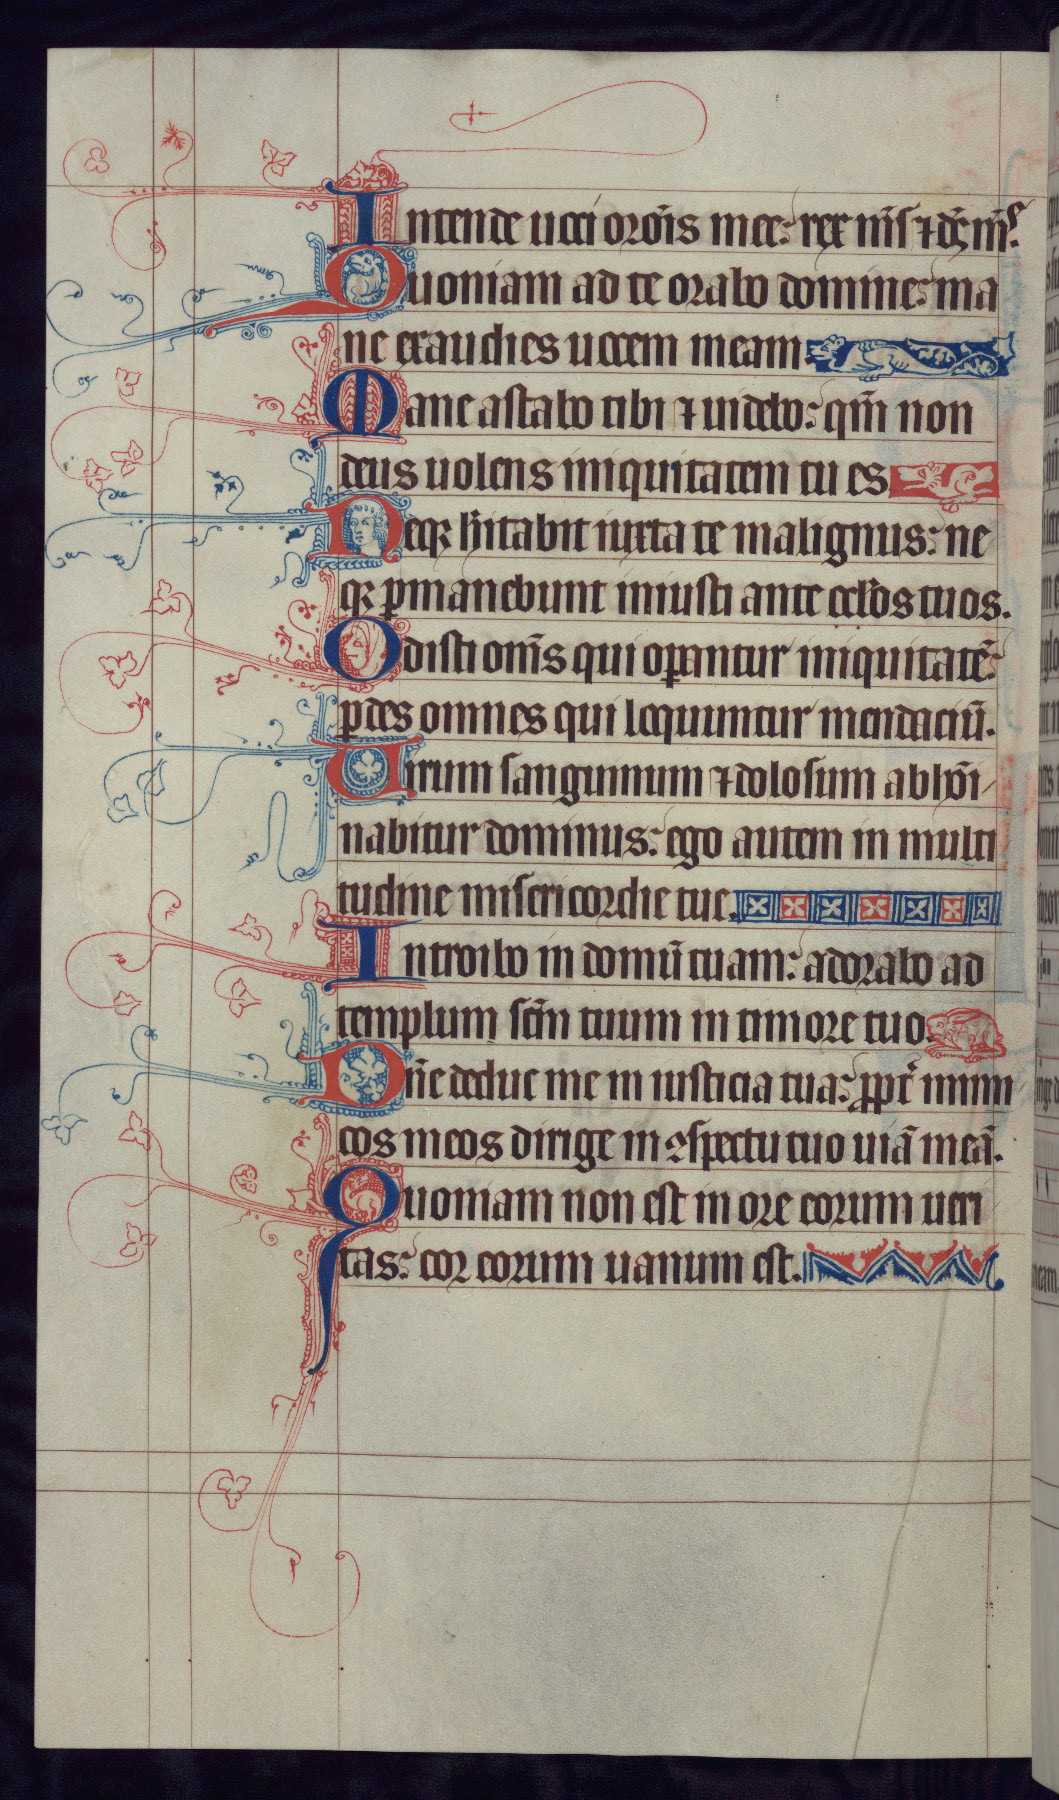 Intende uoci orōis mee: rex mīs ⁊ ds̄ mīs.
Quoniam ad te orabo domine: ma
ne exaudies uocem meam.
Mane astabo tibi ⁊ uidebo: qm̄ non
deus uolens iniquitatem tu es
Neqꝫ hītabit iuxta te malignus: ne
qꝫ ꝑmanebunt iniusti ante oclōs tuos.
Odisti om̄s qui oꝑantur iniquitatē:
ꝑdes omnes qui loquuntur mendaciū.
Uirum sanguinum ⁊ dolosum abhōi
nabitur dominus: ego autem in multi
tudine misericordie tue.
Introibo in domū tuam: adorabo ad
templum scm̄ tuum in timore tuo.
Dn̄e deduc me in iusticia tua: ꝓpt̄ inimi
cos meos dirige in ꝯspectu tuo uiā meā.
Quoniam non est in ore eorum ueri
tas: cor eorum uanum est.